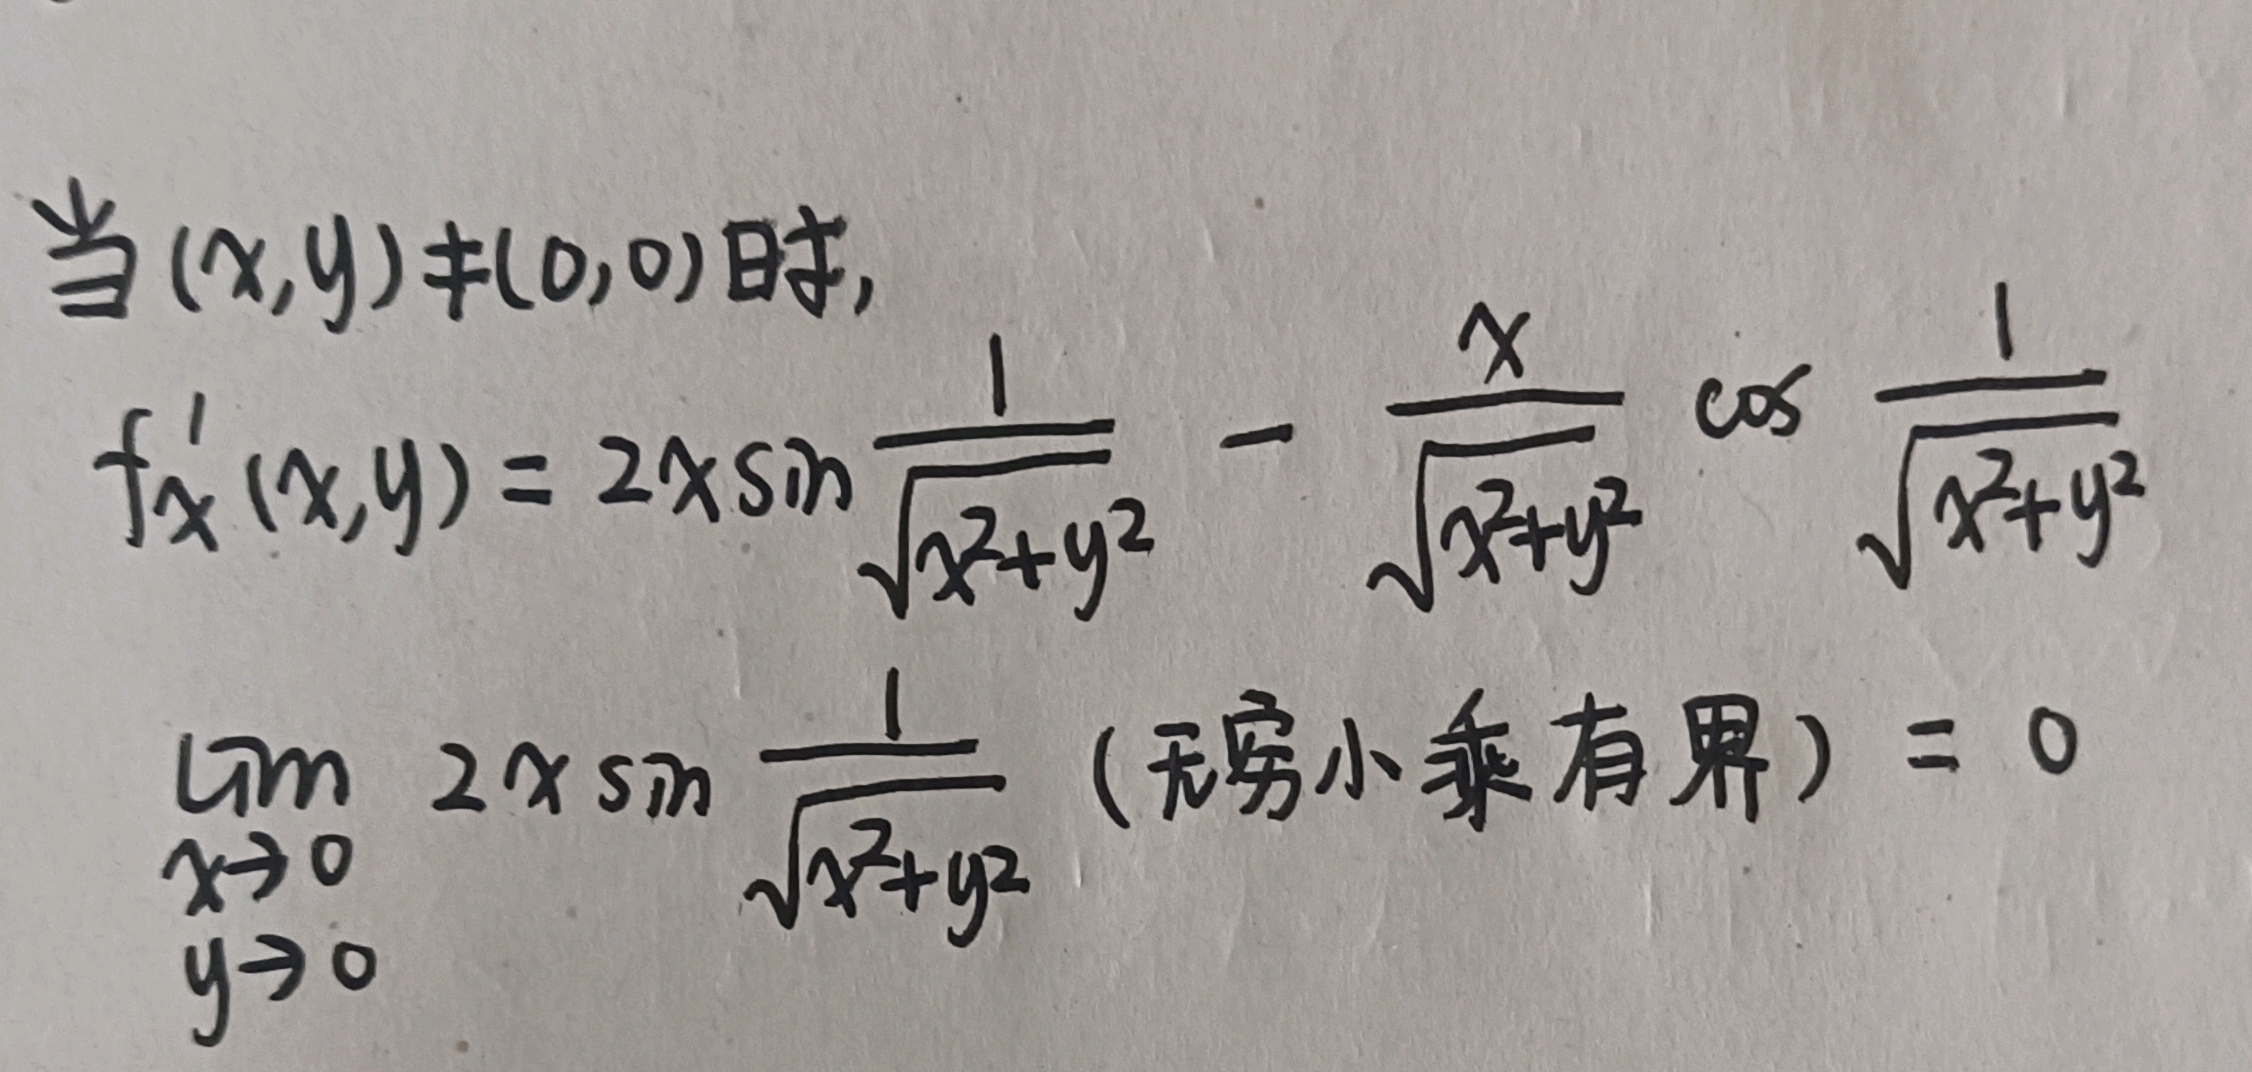 当(x,y)≠(0,0)时,
f'ₓ(x,y) = 2x sin 1/√(x²+y²) - x/√(x²+y²) cos 1/√(x²+y²)
lim 2x sin 1/√(x²+y²) (无穷小乘有界) = 0
x→0
y→0